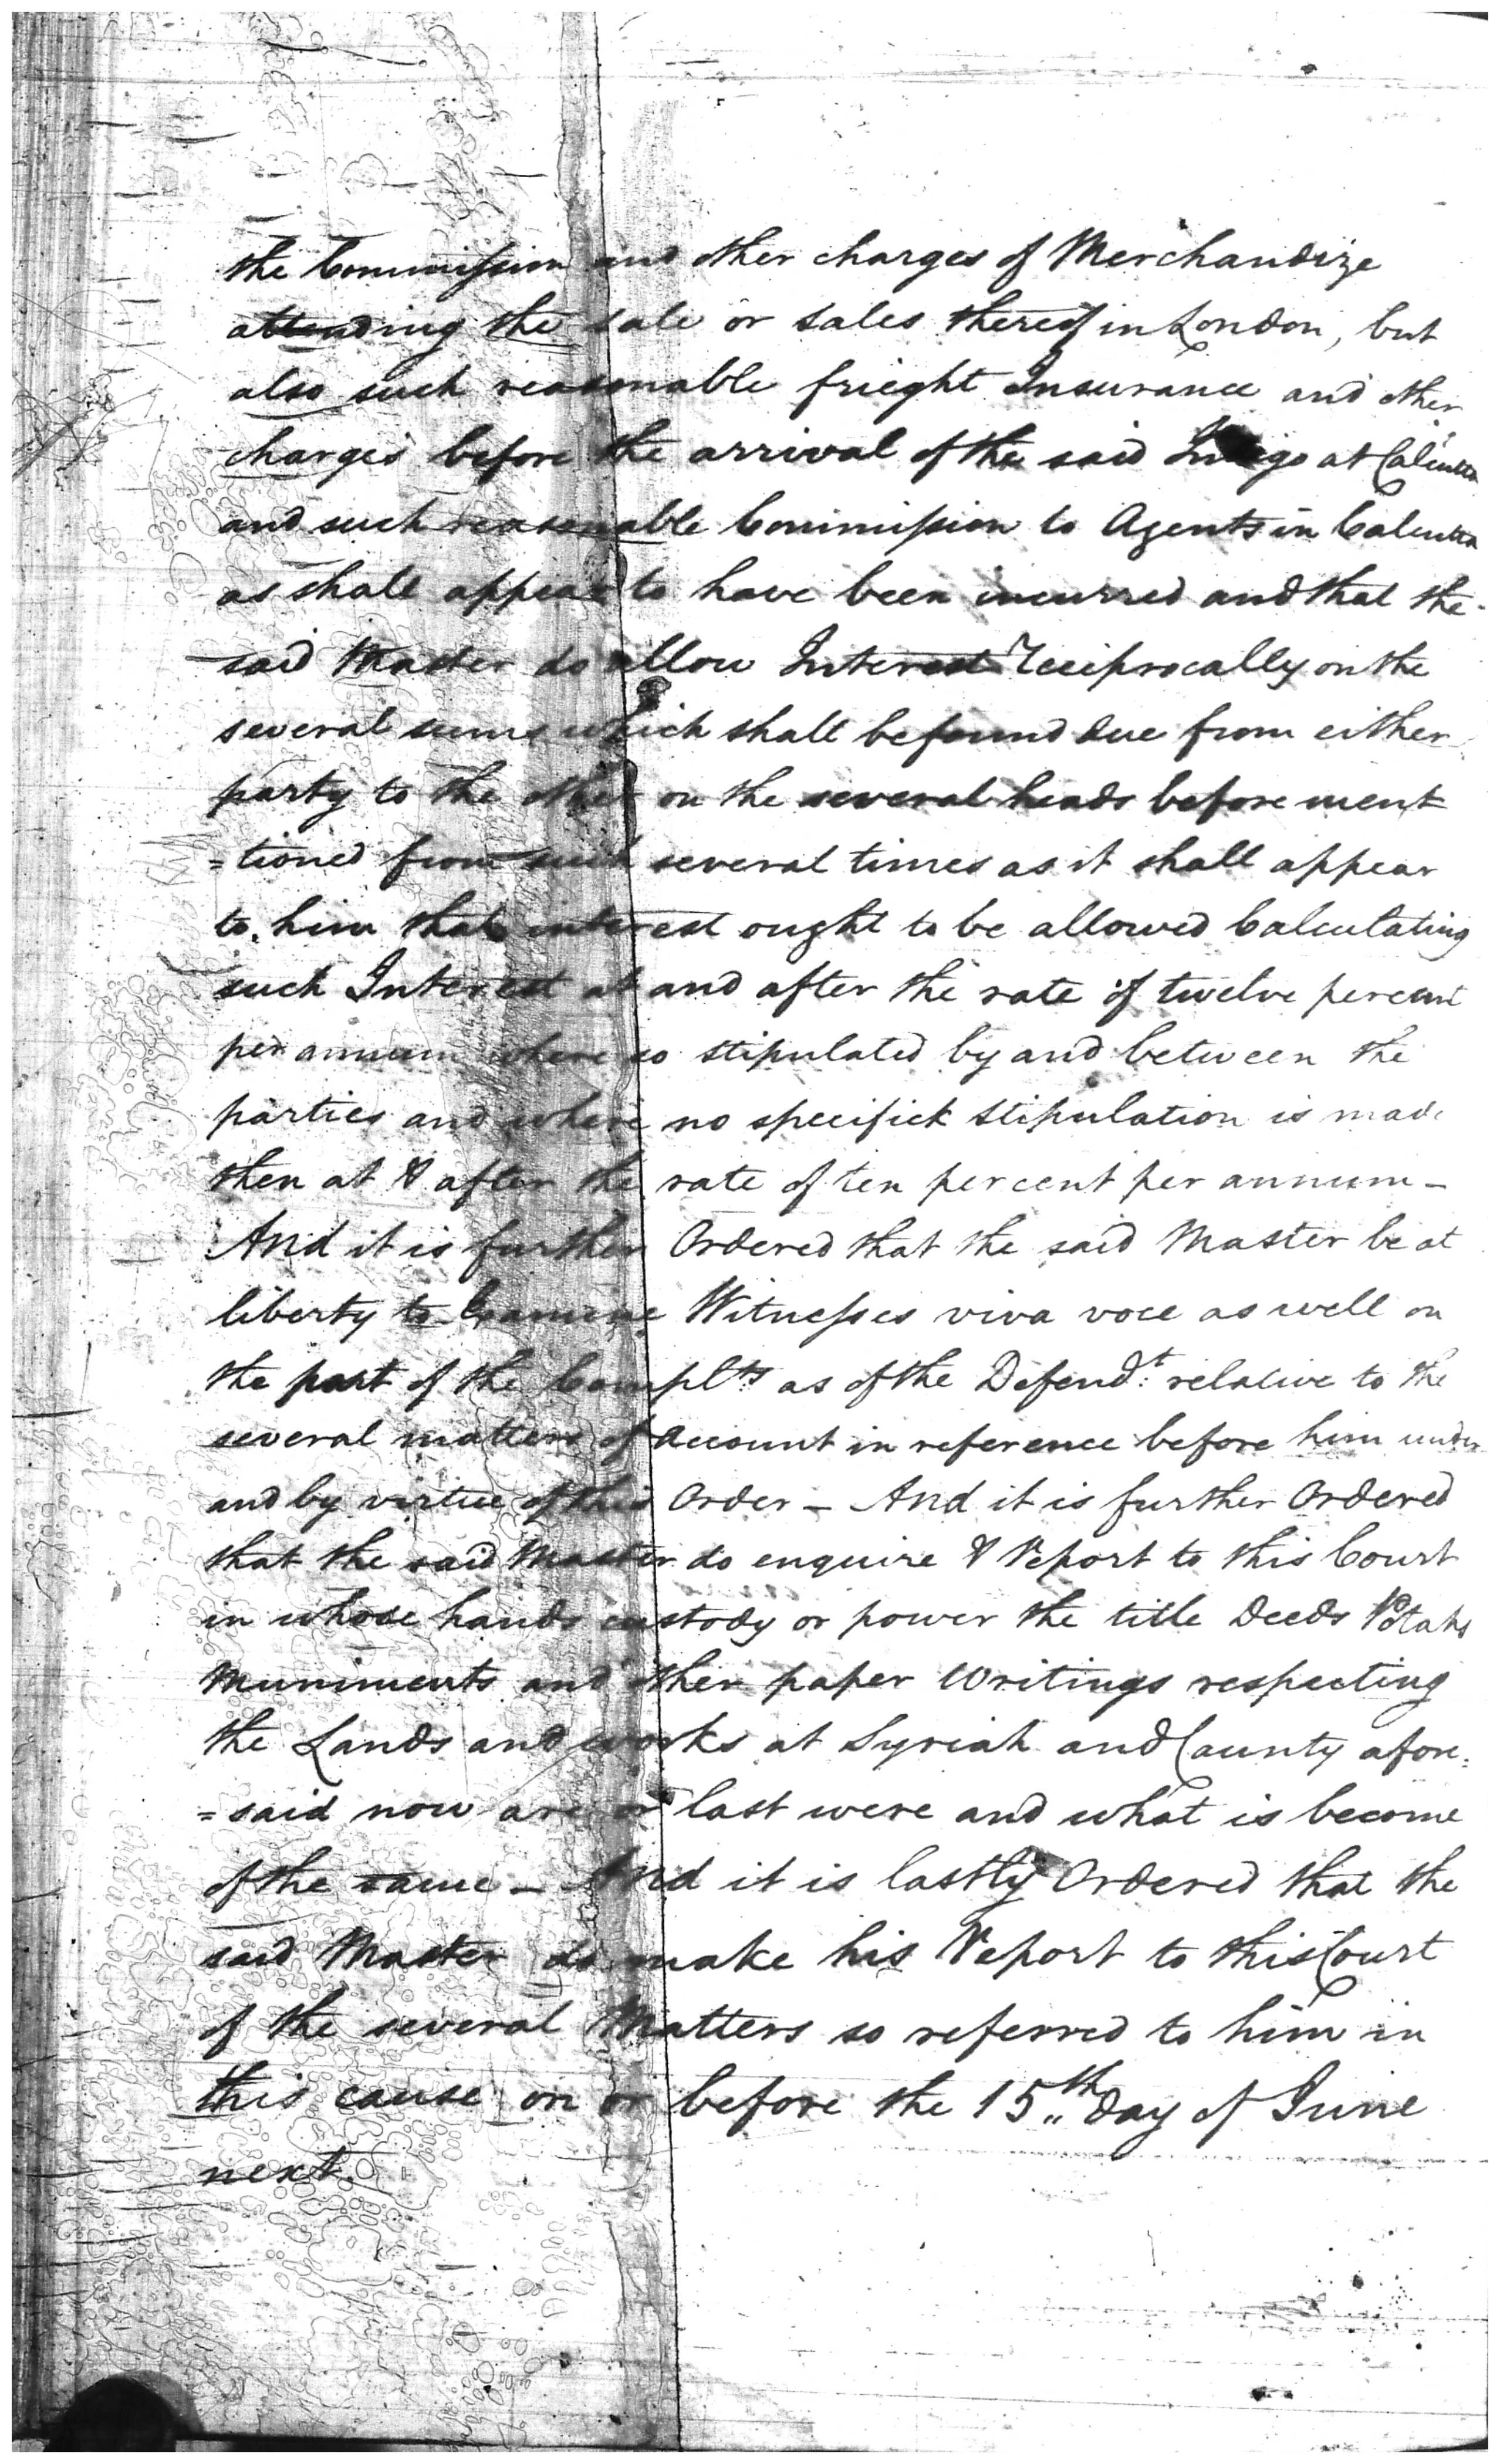 the Commission and other charges of Merchandize
attending the sale or sales thereof in London, but
also such reasonable frieght Insurance and other
charges before the arrival of the said Indigo at Calcutta
and such reasonable Commission to Agents in Calcutta
as shall appear to have been incurred and that the
said Master do allow Interest reciprocally on the
several sums which shall be found due from either
party to the other on the several heads before ment
=tioned from such several times as it shall appear
to him that interest ought to be allowed Calculating
such Interest at and after the rate of twelve percent
per annum where so stipulated by and between the
parties and where no specifick Stipulation is made
then at & after the rate of ten per cent per annum –
And it is further Ordered that the said Master be at
liberty to Examine Witnesses viva voce as well on
the part of the Complts as of the Defendt relative to the
several matters of Account in reference before him under
and by virtue of this Order – And it is further Ordered
that the said Master do enquire & Report to this Court
in whose hands custody or power the title Deeds Potahs
Muniments and other paper Writings respecting
the Lands and works at Syriah and County afore=
=said now are or last were and what is become
of the same – And it is lastly Ordered that the
said Master do make his Report to this Court
of the several Matters so referred to him in
this cause on or before the 15th day of June
next.